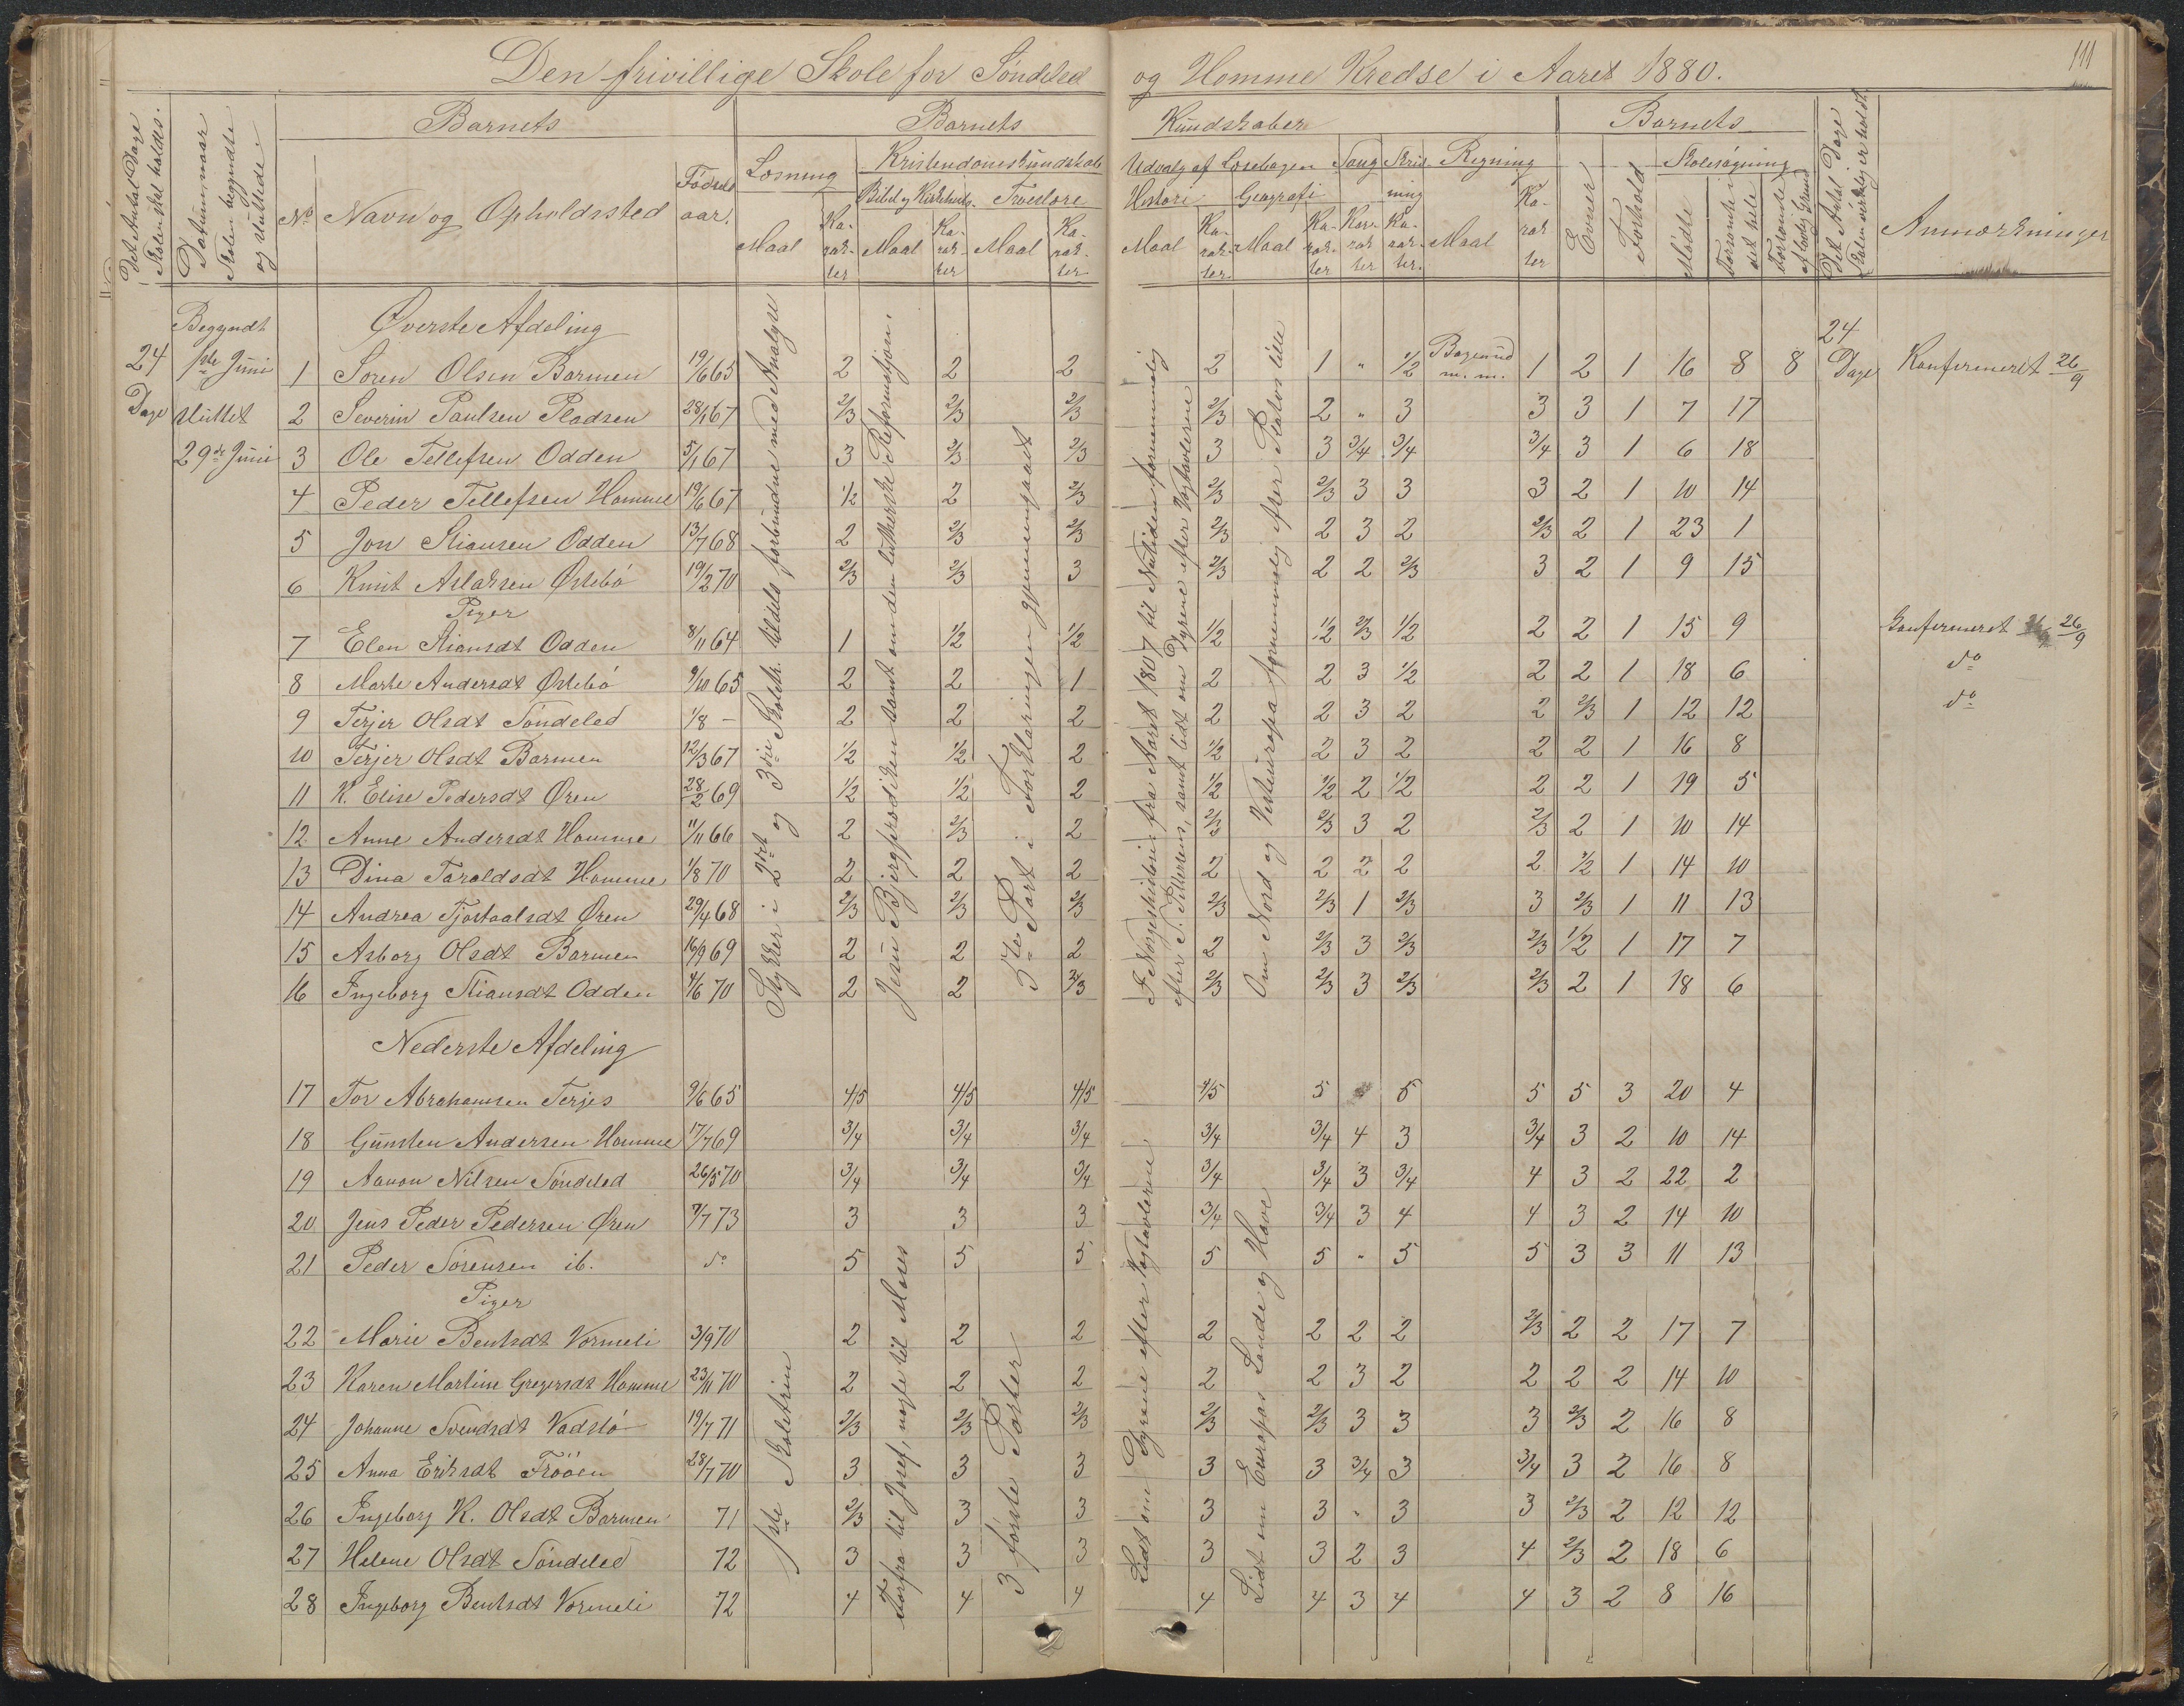 111
Den frivillige Skole for Søndeled og Homme Kredse i Aaret 1880.
Det Antal Dage Skolen skal holdes.
Datum, naar Skolen begyndte og sluttede.
Barnets
No
Navn og Opholdssted
Fødselsaar.
Barnets Kundskaber
Læsning
Maal
Karakter
Kristendomskundskab
Bibel- og Kirkehist.
Maal
Karakter
Troeslære
Maal
Karakter
Udvalg af Læsebogen
Historie
Maal
Karakter
Geografi
Maal
Karakter
Sang
Karakter
Skrivning
Karakter
Regning
Maal
Karakter
Barnets
Evner
Forhold
Skolesøgning
Mødte
Forsømte i det hele
Forsømte af lovlig Grund
Det Antal Dage Skolen virkelig er holdt.
Anmærkninger
24 Dage
Begyndt 1ste Juni
sluttet 29de Juni
Øverste Afdeling
1 Søren Olsen Barmen 19/6 65 2 2 2 2 1 " 1/2 Bøgenud m.m. 1 2 1 16 8 8 24 Dage Konfirmeret 26/9
2 Severin Paulsen Pladsen 28/1 67 2/3 2/3 2/3 2/3 2 " 3 3 3 1 7 17
3 Ole Tellefsen Odden 5/1 67 3 2/3 2/3 3 3 3/4 3/4 3/4 3 1 6 18
4 Peder Tellefsen Homme 19/6 67 1/2 2 2/3 2/3 2/3 3 3 3 2 1 10 14
5 Jon Stiansen Odden 13/7 68 2 2/3 2/3 2/3 2 3 2 2/3 2 1 23 1
6 Knut Aslaksen Østebø 19/2 70 2/3 2/3 3 2/3 2 2 2/3 3 2 1 9 15
Piger
7 Elen Stiansdt Odden 8/11 64 1 1/2 1/2 1/2 1/2 2/3 1/2 2 2 1 15 9 Konfirmeret 26/9
8 Marte Andersdt Østebø 9/10 65 2 2 1 2 2 3 1/2 2 2 1 18 6 do
9 Terjer Olsdt Søndeled 1/8 - 2 2 2 2 2 3 2 2 2/3 1 12 12 do
10 Terjer Olsdt Barmen 12/3 67 1/2 1/2 2 1/2 2 3 2 2 2 1 16 8
11 K. Elise Pedersdt Øren 28/2 69 1/2 1/2 2 1/2 1/2 2 1/2 2 2 1 19 5
12 Anne Andersdt Homme 11/11 66 2 2/3 2 2/3 2/3 3 2 2/3 2 1 10 14
13 Dina Taraldsdt Homme 1/8 70 2 2 2 2 2 2 2 2 1/2 1 14 10
14 Andrea Tjostaalsdt Øren 29/4 68 2/3 2/3 2/3 2/3 2/3 1 2/3 3 2/3 1 11 13
15 Asborg Olsdt Barmen 16/9 69 2 2 2 2 2/3 3 2/3 2/3 1/2 1 17 7
16 Ingeborg Stiansdt Odden 4/6 70 2 2 2/3 2/3 2/3 3 2/3 2/3 2 1 18 6
Stykker i 2det og 3die Skoletr. tildels forbundne med Analyse
Jesu Bjergprædiken samt om den lutherske Reformatjon.
3de Part i Forklaringen gjennemgaaet
I Norgeshistorien fra Aaret 1807 til Nutiden fornemmelig
efter S. Petersens, samt lidt om Dyrene efter Vægtavlerne
Om Nord og Vesteuropa fornemmelig efter Platous lille
Nederste Afdeling
17 Tor Abrahamsen Terjes 9/6 65 4/5 4/5 4/5 4/5 5 5 5 5 3 20 4
18 Gunsten Andersen Homme 17/7 69 3/4 3/4 3/4 3/4 3/4 4 3 3/4 3 2 10 14
19 Aanon Nilsen Søndeled 26/5 70 3/4 3/4 3/4 3/4 3/4 3 3/4 4 3 2 22 2
20 Jens Peder Pedersen Øren 7/7 73 3 3 3 3/4 3/4 3 4 4 3 2 14 10
21 Peder Sørensen ib. do 5 5 5 5 5 " 5 5 3 3 11 13
Piger
22 Marie Bentsdt Vormeli 3/9 70 2 2 2 2 2 2 2 2/3 2 2 17 7
23 Karen Martine Gregersdt Homme 23/11 70 2 2 2 2 2 3 2 2 2 2 14 10
24 Johanne Svendsdt Vadstø 19/7 71 2/3 2/3 2/3 2/3 2/3 3 3 3 2/3 2 16 8
25 Anna Eriksdt Frööen 28/7 70 3 3 3 3 3 3/4 3 3/4 3 2 16 8
26 Ingeborg K. Olsdt Barmen 71 2/3 3 3 3 3 " 3 3 2/3 2 12 12
27 Helene Olsdt Søndeled 72 3 3 3 3 3 2 3 4 2/3 2 18 6
28 Ingeborg Bentsdt Vormeli 72 4 4 4 4 4 3 4 4 3 2 8 16
1ste Skoletrin
Forfra til Josef, nogle til Moses
3 første Parter
Lidt om Dyrene efter Vægtavlerne
Lidt om Europas Lande og Have